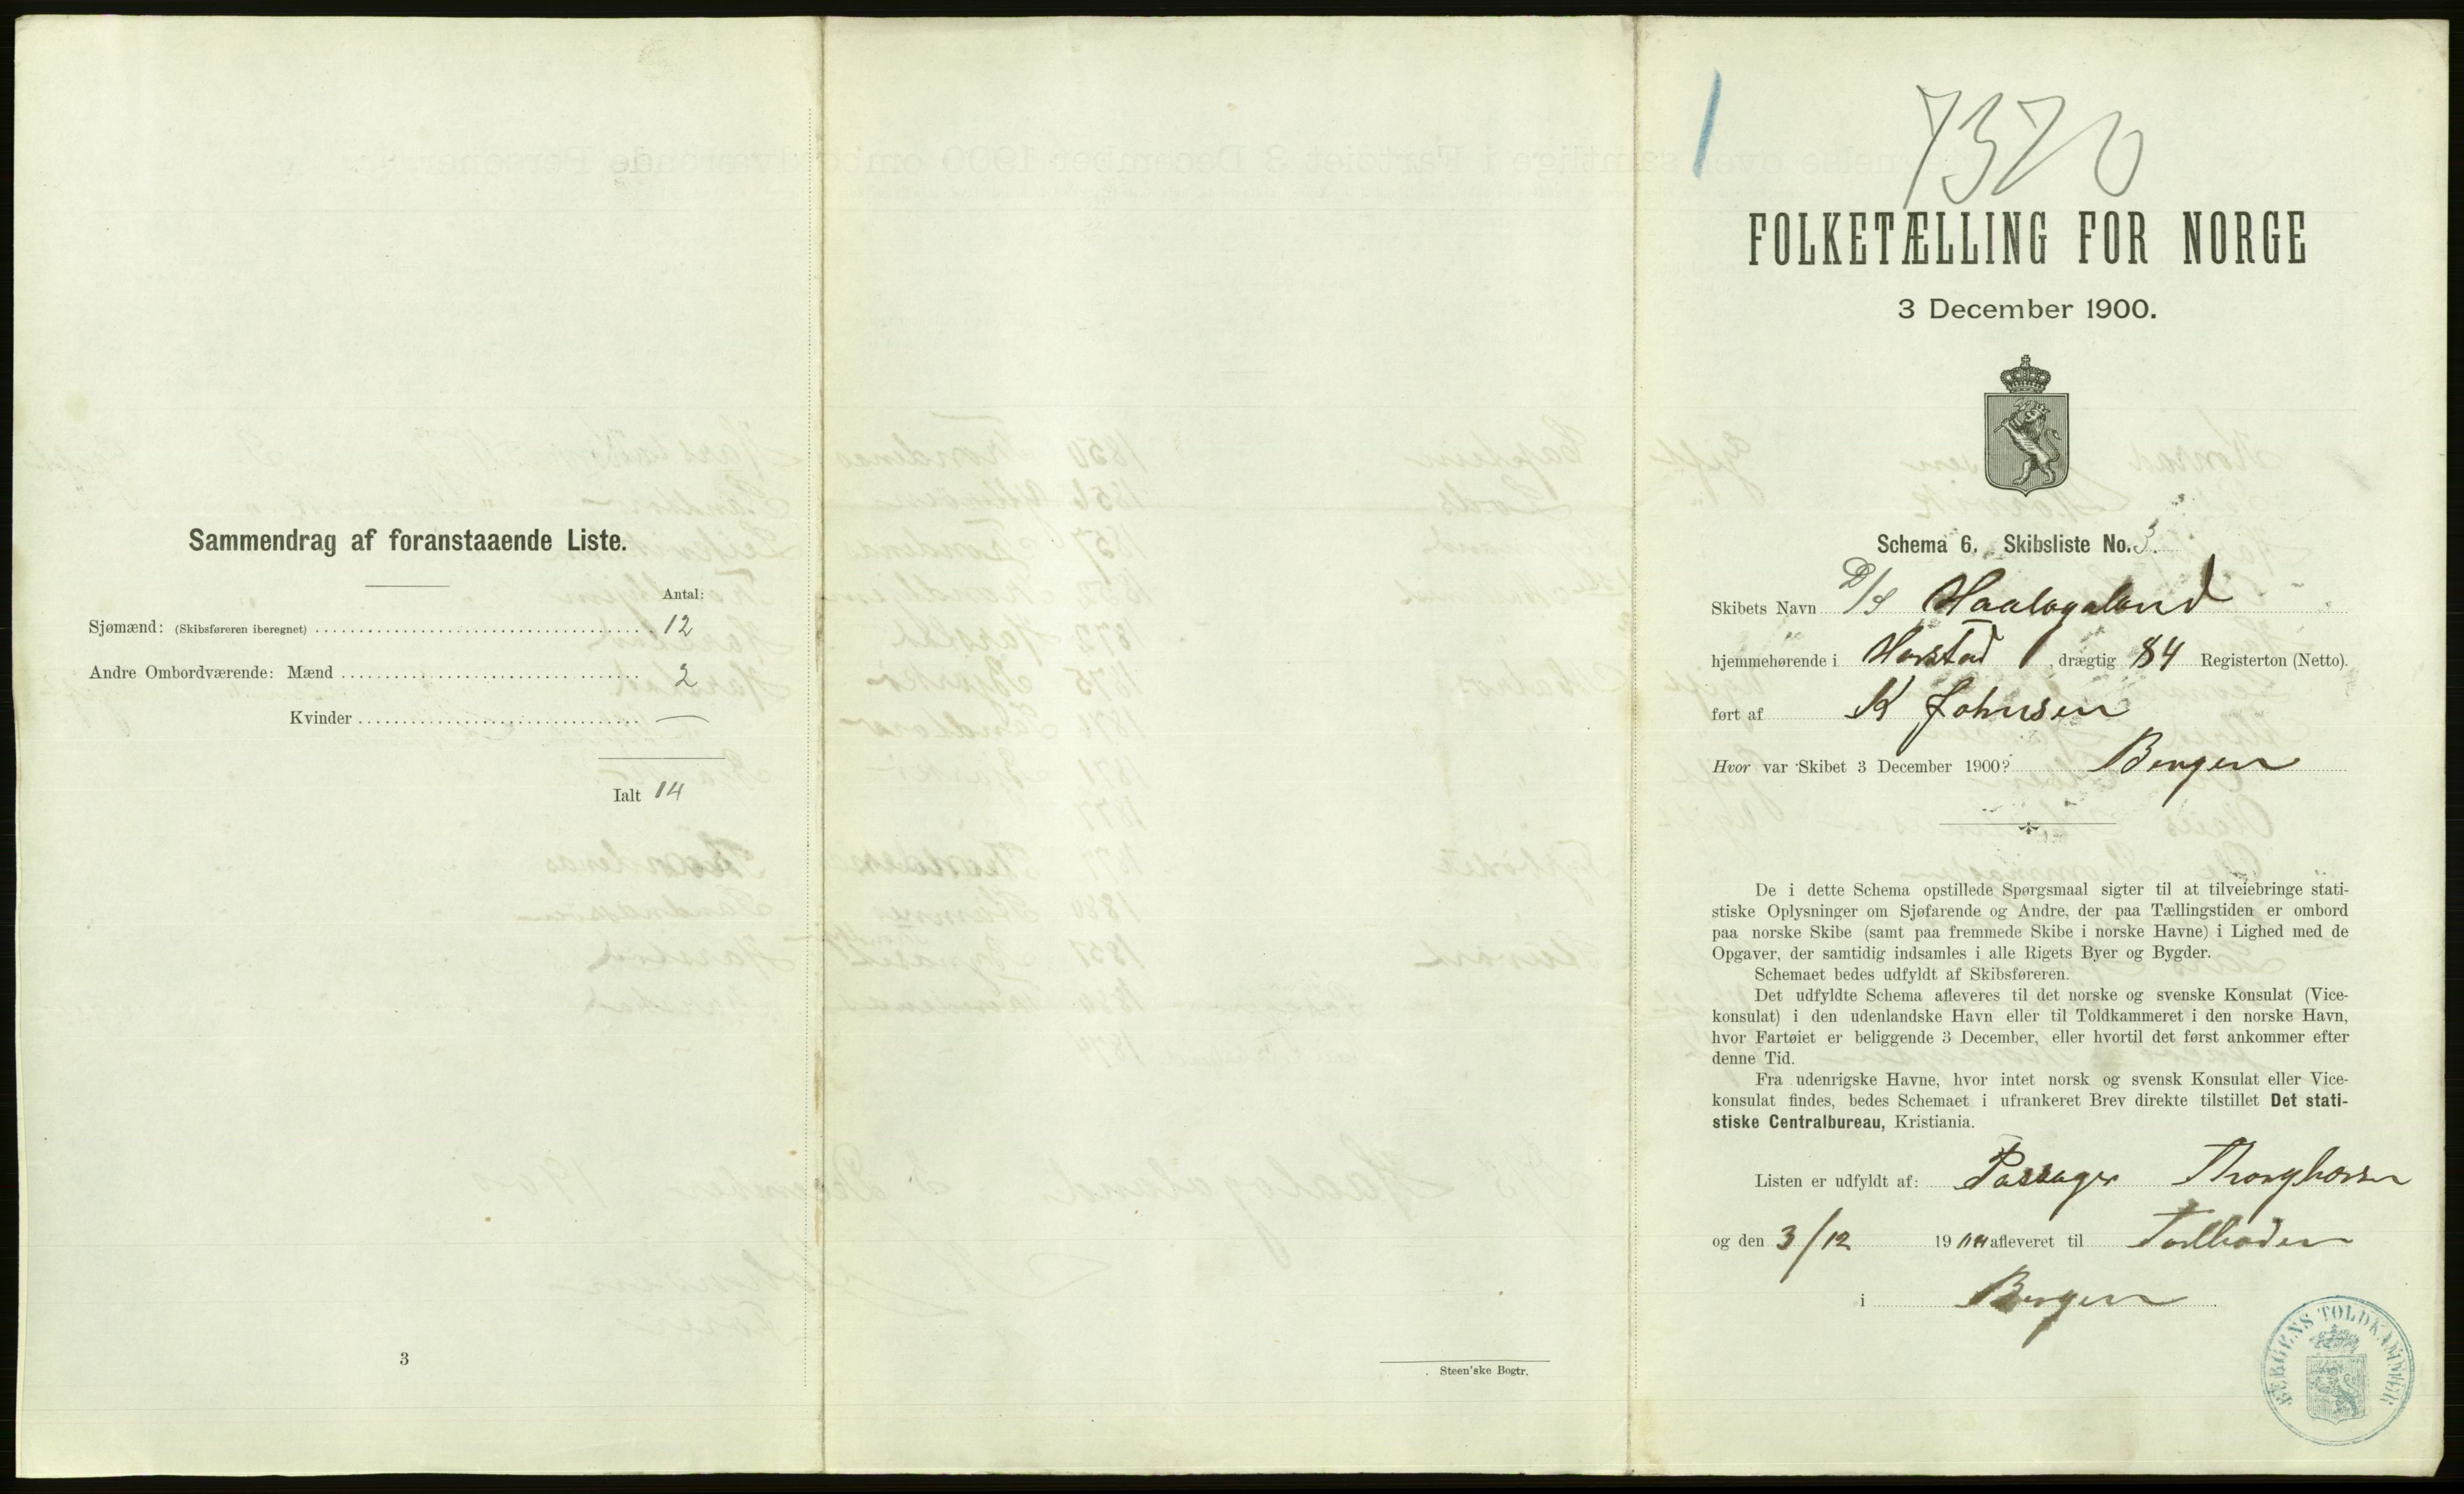 Sammendrag af foranstaaende Liste.
Antal:
Sjømænd: (Skibsføreren iberegnet) 12
Andre Ombordværende: Mænd 2
Kvinder —
Ialt 14
3
Steen'ske Bogtr.
1
7370
FOLKETÆLLING FOR NORGE
3 December 1900.
Schema 6. Skibsliste No. 3.
Skibets Navn D/S Haalogaland
hjemmehørende i Harstad, drægtig 84 Registerton (Netto).
ført af K Johnsen
Hvor var Skibet 3 December 1900? Bergen
De i dette Schema opstillede Spørgsmaal sigter til at tilveiebringe stati-
stiske Oplysninger om Sjøfarende og Andre, der paa Tællingstiden er ombord
paa norske Skibe (samt paa fremmede Skibe i norske Havne) i Lighed med de
Opgaver, der samtidig indsamles i alle Rigets Byer og Bygder.
Schemaet bedes udfyldt af Skibsføreren.
Det udfyldte Schema afleveres til det norske og svenske Konsulat (Vice-
konsulat) i den udenlandske Havn eller til Toldkammeret i den norske Havn,
hvor Fartøiet er beliggende 3 December, eller hvortil det først ankommer efter
denne Tid.
Fra udenrigske Havne, hvor intet norsk og svensk Konsulat eller Vice-
konsulat findes, bedes Schemaet i ufrankeret Brev direkte tilstillet Det stati-
stiske Centralbureau, Kristiania.
Listen er udfyldt af: Passager
og den 3/12 19 afleveret til Toldboden
i Bergen
BERGENS TOLDKAMMER